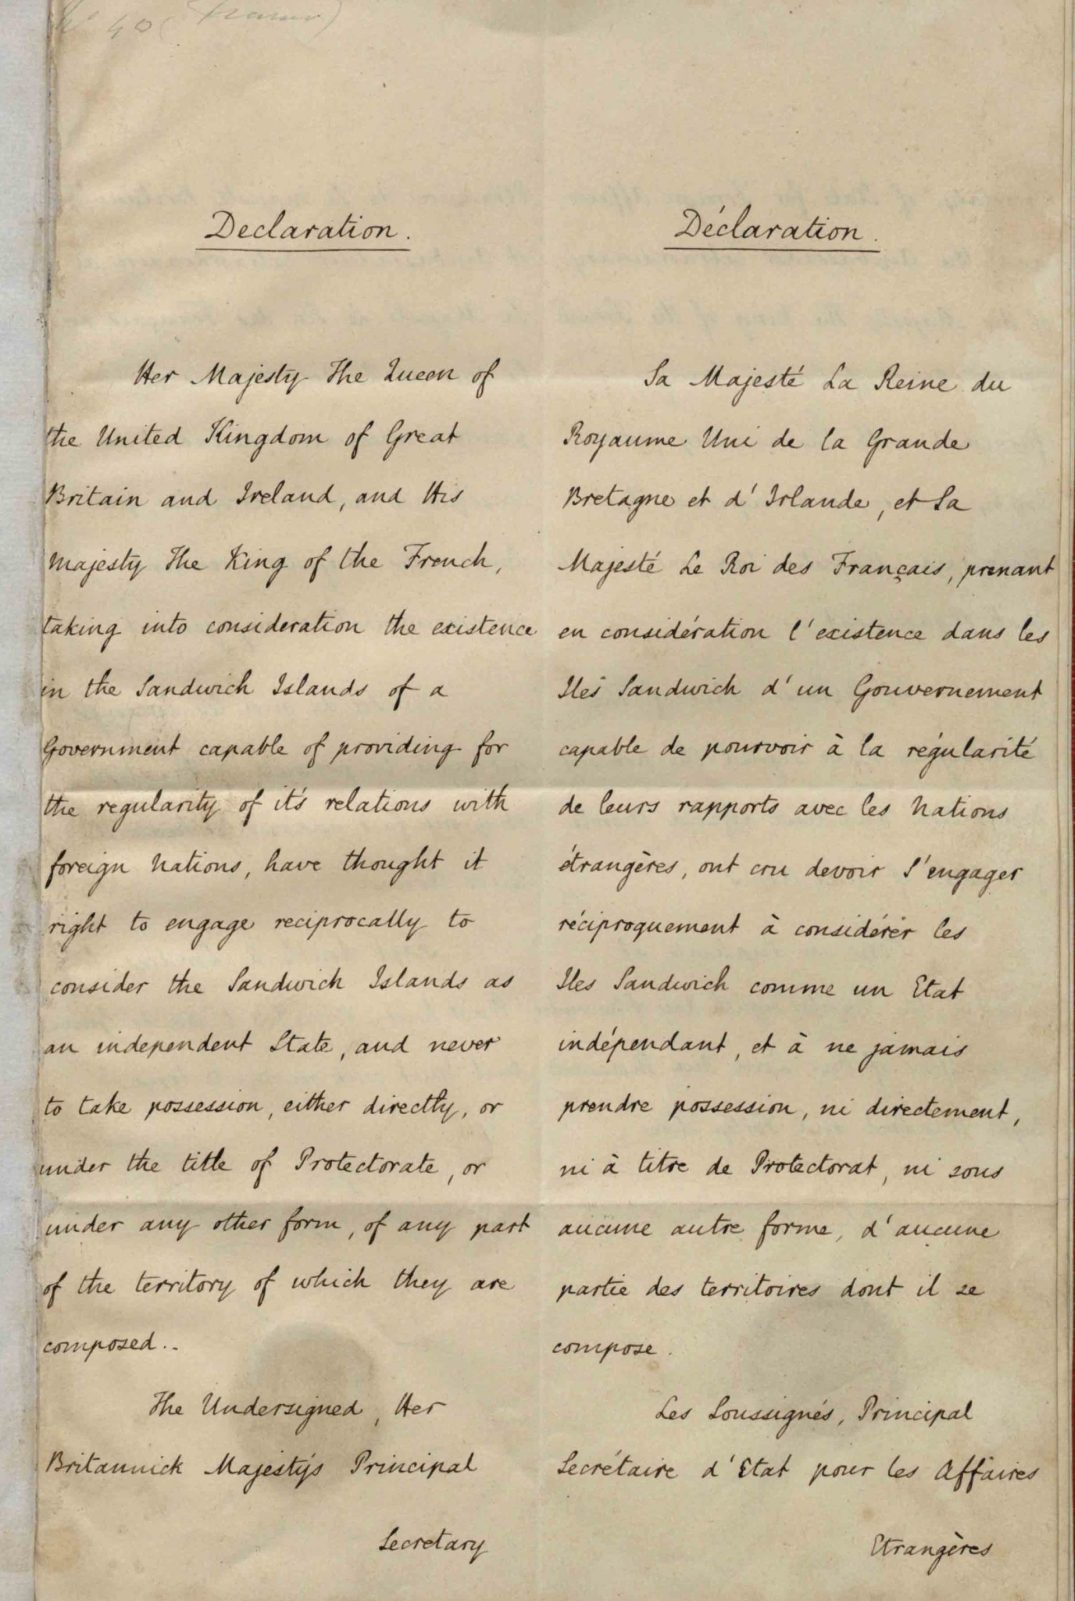 Declaration.
Her Majesty The Queen of
the United Kingdom of Great
Britain and Ireland, and His
Majesty The King of the French,
taking into consideration the existence
in the Sandwich Islands of a
Government capable of providing for
the regularity of it's relations with
foreign Nations, have thought it
right to engage reciprocally to
consider the Sandwich Islands as
an independent State, and never
to take possession, either directly, or
under the title of Protectorate, or
under any other form, of any part
of the territory of which they are
composed..
The Undersigned, Her
Britannick Majesty's Principal
Secretary
Déclaration.
Sa Majesté La Reine du
Royaume Uni de la Grande
Bretagne et d'Irlande, et Sa
Majesté Le Roi des Français, prenant
en considération l'existence dans les
Iles Sandwich d'un Gouvernement
capable de pourvoir à la régularité
de leurs rapports avec les Nations
étrangères, ont cru devoir s'engager
réciproquement à considérér les
Iles Sandwich comme un Etat
indépendant, et à ne jamais
prendre possession, ni directement,
ni à titre de Protectorat, ni sous
aucune autre forme, d'aucune
partie des territoires dont il se
compose.
Les Soussignés, Principal
Secrétaire d'Etat pour les Affaires
Etrangères